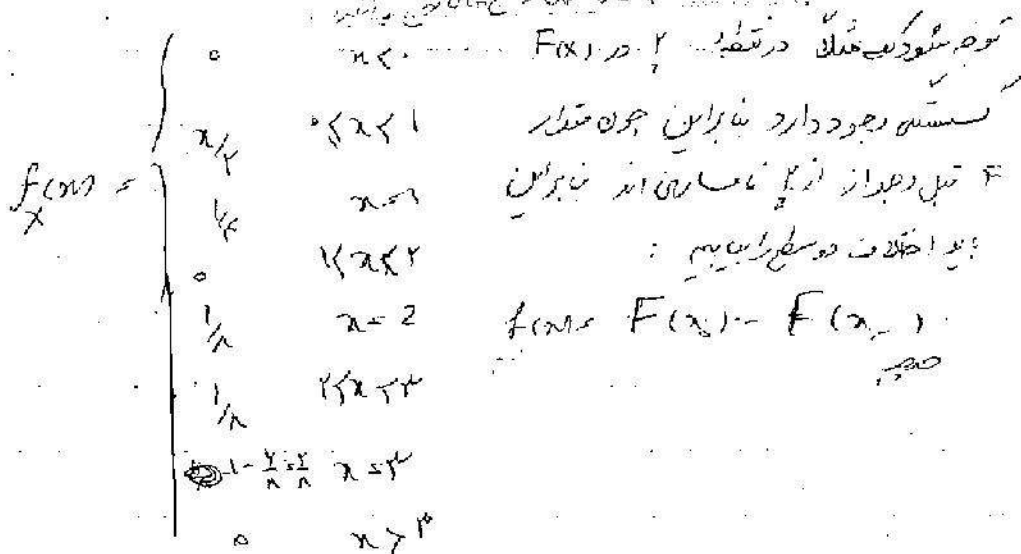 توجه شود که مثلاً در نقطه ۲ در F(x)
گسستگی وجود دارد بنابراین چون مقدار
F قبل و بعد از ۲ نامساوی اند بنابراین
باید اختلاف دو سطح را بیابیم :
f(x) = F(x) - F(x-)
f(x) =
X
۰ x<۰
x/۲ ۰<x<۱
۱/۴ x=۱
۰ ۱<x<۲
۱/۸ x=2
۱/۸ ۲<x<۳
x=۳
۰ x>۳